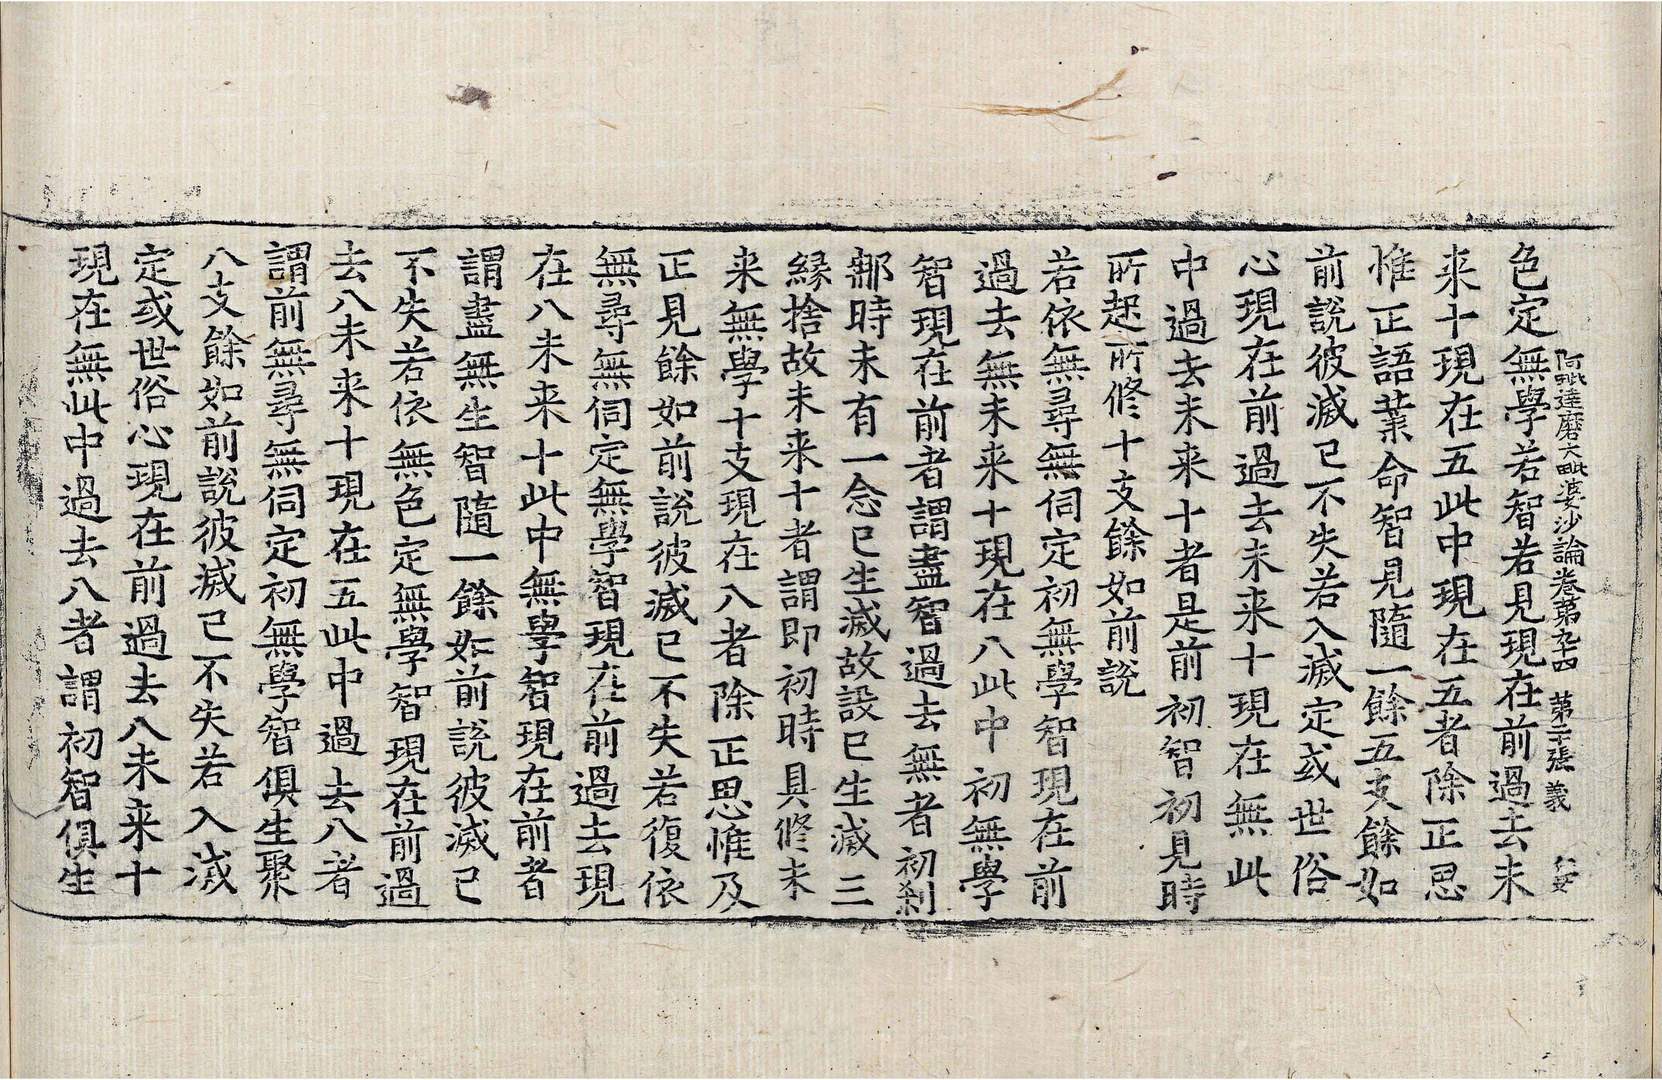 阿毗達磨大毗婆沙論卷第九十四 第二十張 義
色定無學若智若見現在前過去未
来十現在五此中現在五者除正思
惟正語業命智見隨一餘五支餘如
前說彼滅已不失若入滅定或世俗
心現在前過去未来十現在無此
中過去未来十者是前初智初見時
所起所修十支餘如前說
若依無尋無伺定初無學智現在前
過去無未来十現在八此中初無學
智現在前者謂盡智過去無者初刹
那時未有一念已生滅故設已生滅三
緣捨故未来十者謂即初時具修未
来無學十支現在八者除正思惟及
正見餘如前說彼滅已不失若復依
無尋無伺定無學智現在前過去現
在八未来十此中無學智現在前者
謂盡無生智隨一餘如前說彼滅已
不失若依無色定無學智現在前過
去八未来十現在五此中過去八者
謂前無尋無伺定初無學智俱生聚
八支餘如前說彼滅已不失若入滅
定或世俗心現在前過去八未来十
現在無此中過去八者謂初智俱生